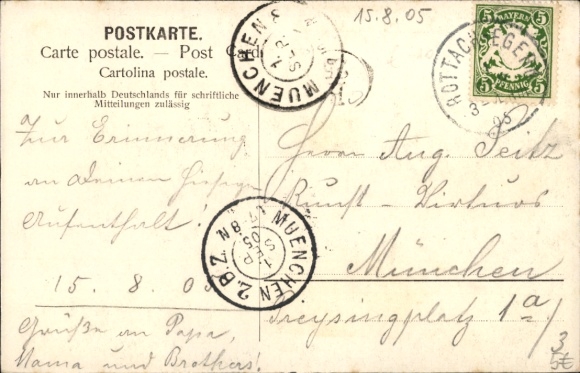 POSTKARTE.
Carte postale. — Post Card
Cartolina postale.
Nur innerhalb Deutschlands für schriftliche
Mitteilungen zulässig
15.8.05
BAYERN
5 5
5 PFENNIG 5
ROTTACH EGERN
MUENCHEN
1 SEP
MUENCHEN 2.B.Z.
1 SEP 05
Zur Erinnerung
an Deinen
Aufenthalt!
15. 8. 05
Grüße an Papa,
Mama und Brothers!
Herrn Aug. Seitz
Kunst-Virtuos
München
Preysingplatz 1a/
3
5€